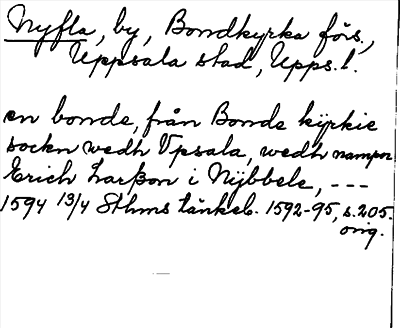 Nyfla, by, Bondkyrka förs.,
Uppsala stad, Upps. l.
en bonde, från Bonde kyrkie
sockn wedh Vpsala, wedh nampn
Erich Larßon i Nÿbbele, ---
1594 13/4 Sthms tänkeb. 1592-95, s. 205.
orig.